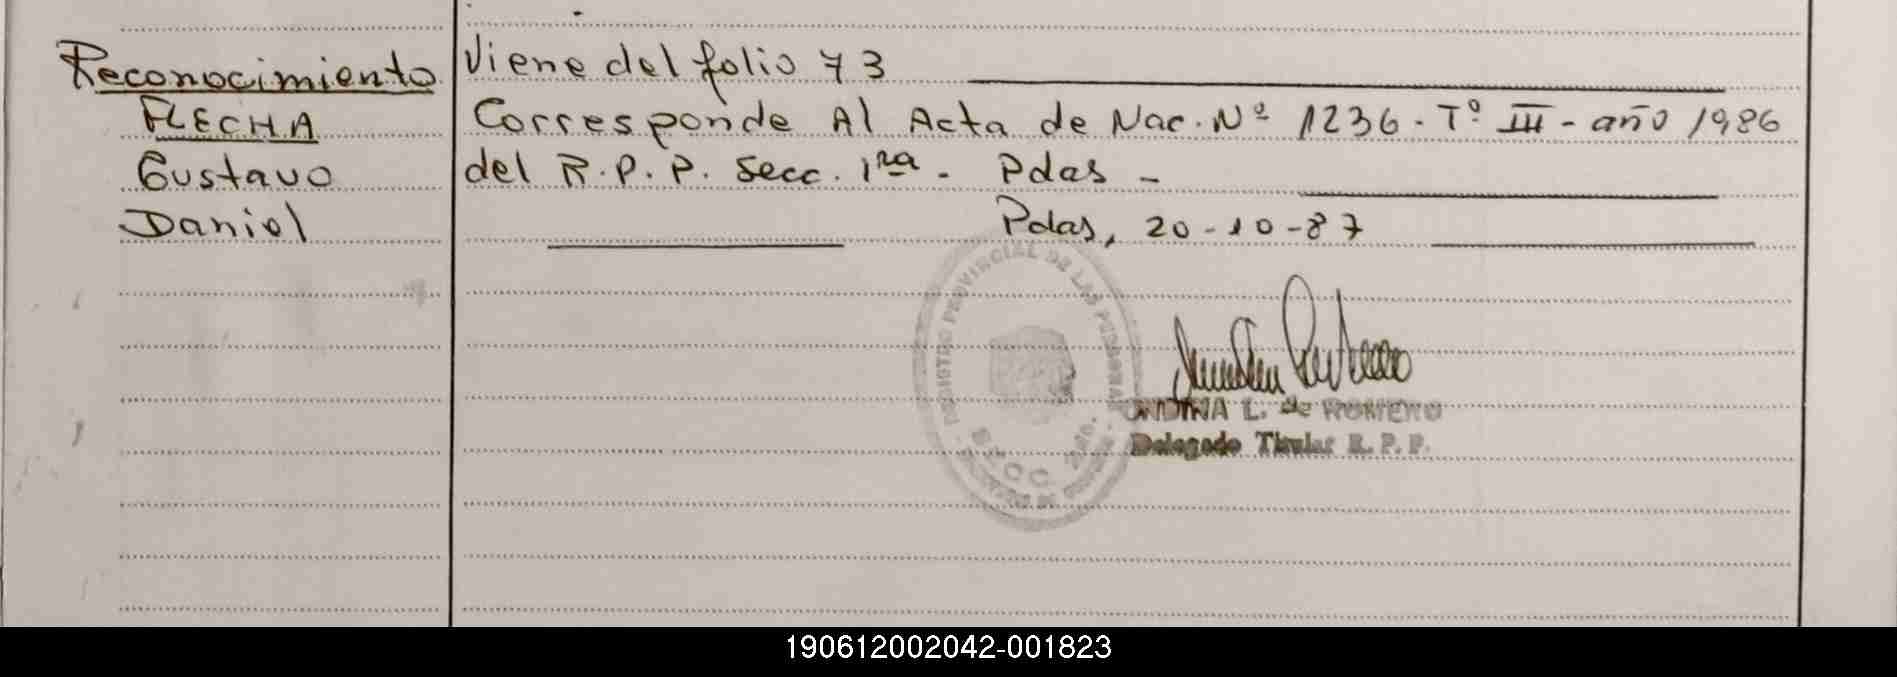 Reconocimiento
FLECHA
Gustavo
Daniel
Viene del folio 73
Corresponde Al Acta de Nac. Nº 1236 - Tº III - año 1986
del R.P.P. Secc. 1ra - Pdas -
Pdas, 20-10-87
REGISTRO PROVINCIAL DE LAS PERSONAS
SECC.
ONDINA L. de ROMERO
Delegado Titular R. P. P.
190612002042-001823